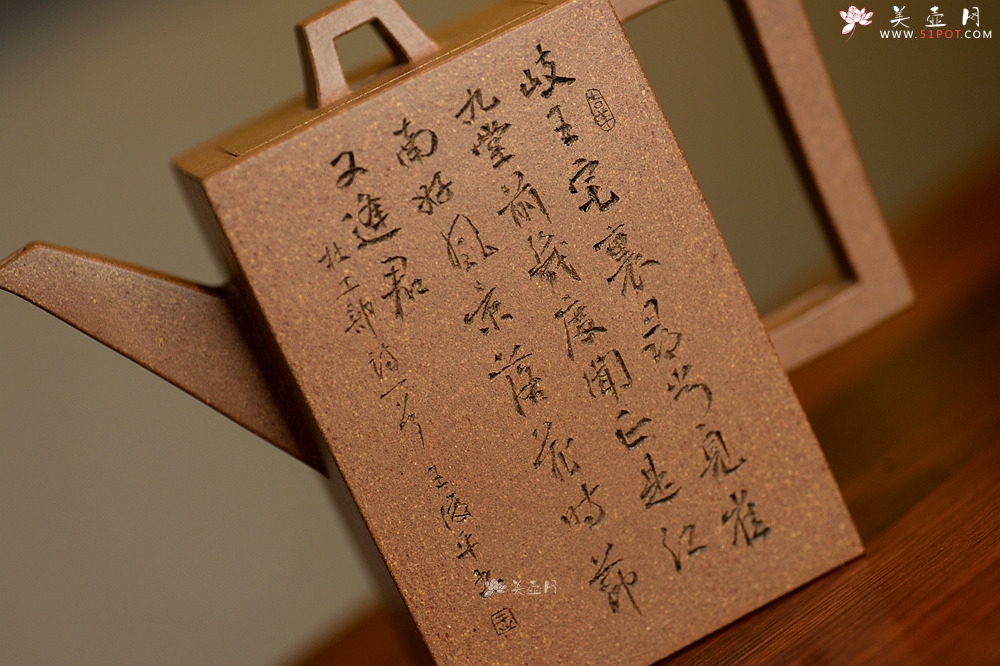 岐王宅裏尋常見崔
九堂前幾度聞正是江
南好風景落花時節
又逢君
杜工部詩一首
美壶网
WWW.51POT.COM
美壶网